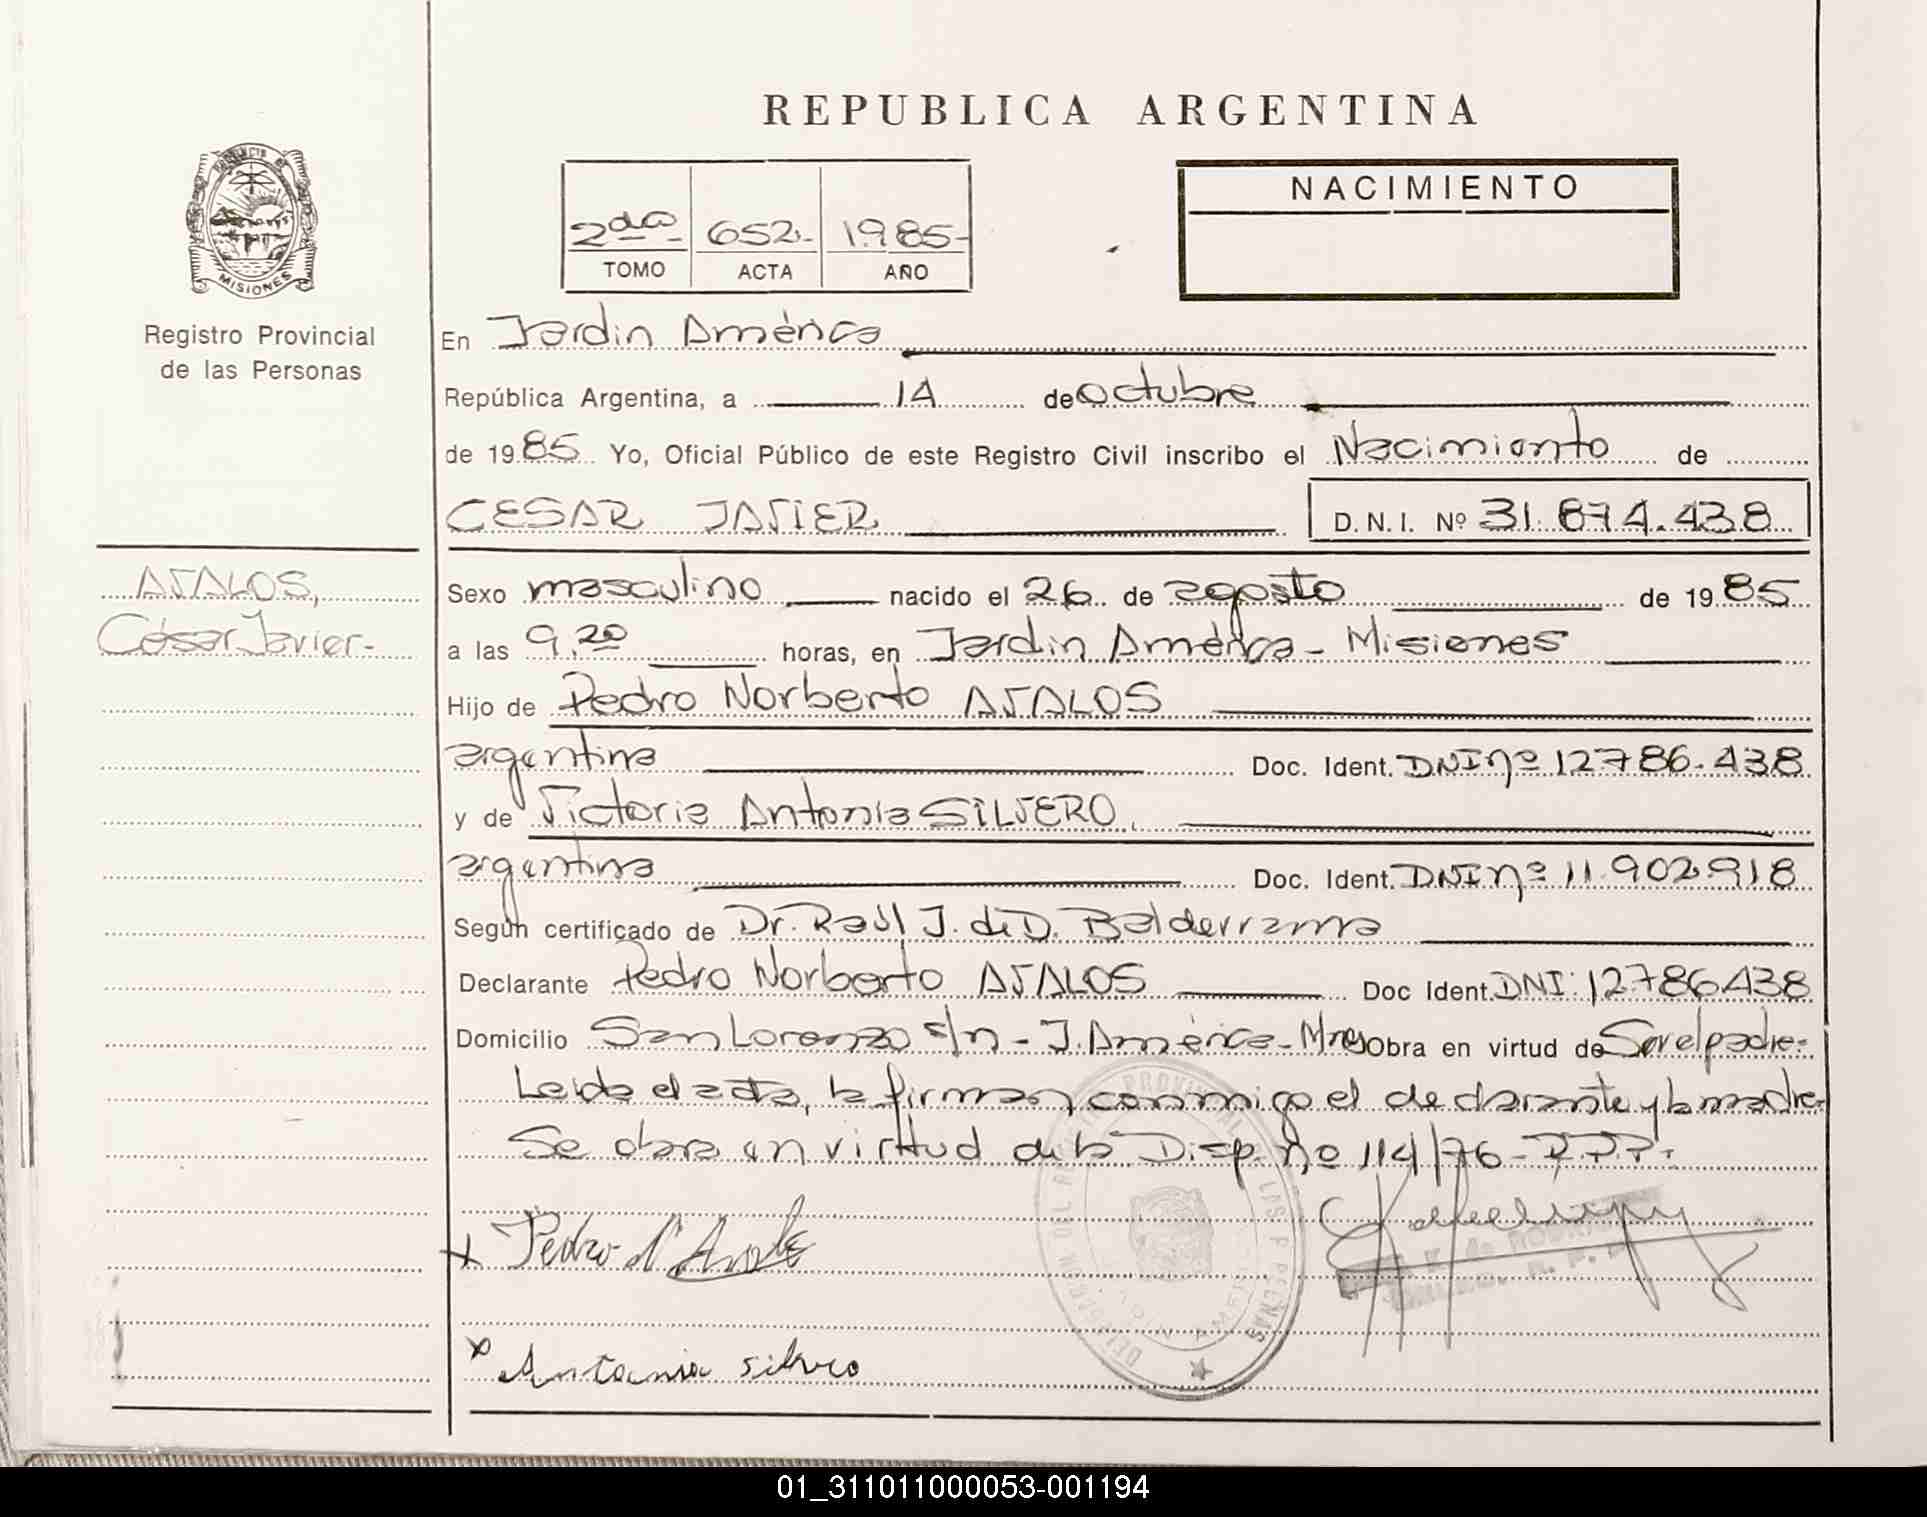 REPUBLICA ARGENTINA
PROVINCIA DE
MISIONES
Registro Provincial
de las Personas
2da 652 1985
TOMO ACTA AÑO
NACIMIENTO
En Jardin América
República Argentina, a 14 de octubre
de 1985 Yo, Oficial Público de este Registro Civil inscribo el Nacimiento de
CESAR JAVIER D.N.I. Nº 31.874.438
AVALOS,
César Javier-
Sexo masculino nacido el 26 de agosto de 1985
a las 9.20 horas, en Jardin América - Misiones
Hijo de Pedro Norberto AVALOS
argentina Doc. Ident. DNI nº 12786.438
y de Victoria Antonia SILVERO,
argentina Doc. Ident. DNI nº 11.902.918
Según certificado de Dr. Raúl J. de D. Balderrama
Declarante Pedro Norberto AVALOS Doc Ident. DNI: 12786438
Domicilio San Lorenzo s/n - J. América - Mnes Obra en virtud de Ser el padre.-
Leida el acta, la firman conmigo el declarante y la madre
Se obra en virtud de la Disp. nº 114/76 - R.P.P.-
x Pedro N
x Antonia silvero
01_311011000053-001194